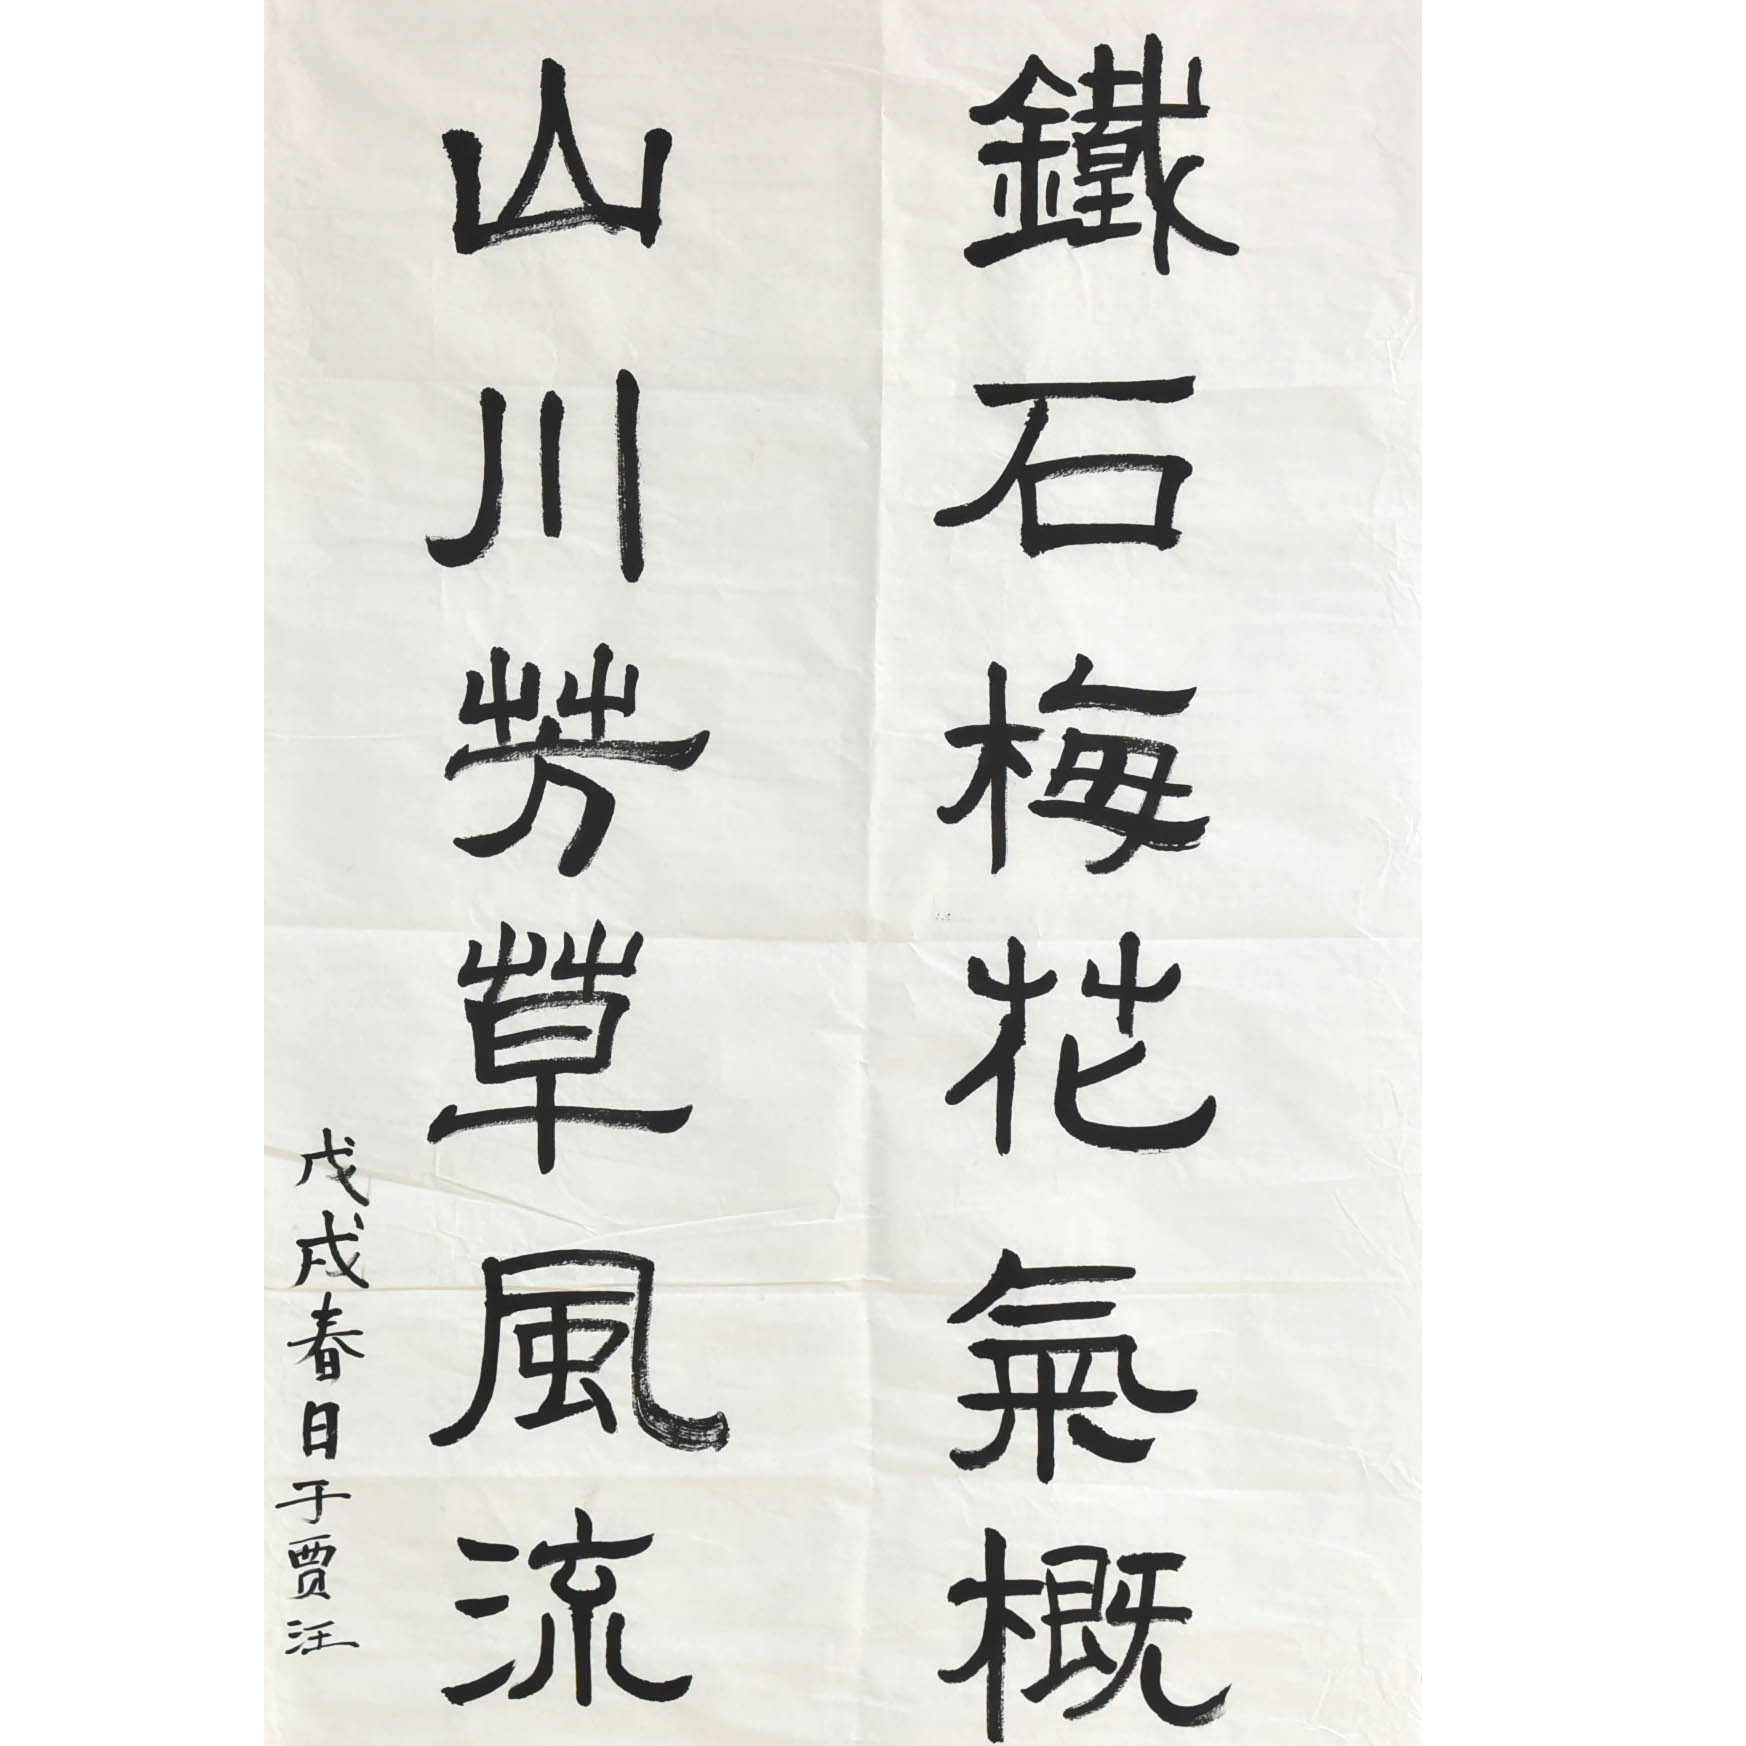 鐵石梅花氣概
山川芳草風流
戊戌春日于贾汪